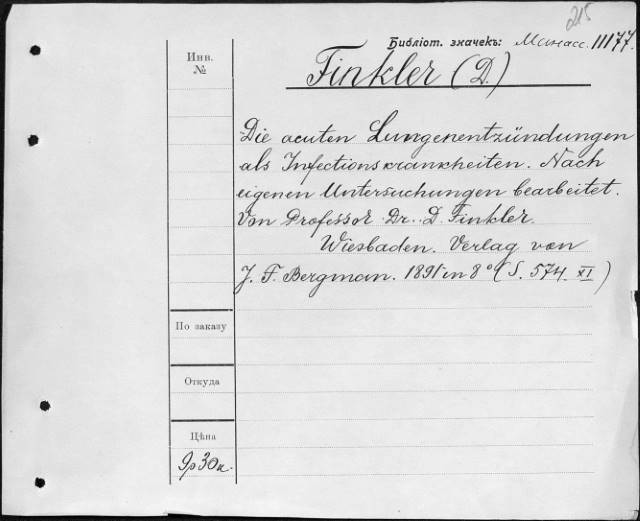 215
Библіот. значекъ: Манасс. 11177.
Инв.
№
Finkler (D.)
Die acuten Lungenentzündungen
als Infectionskrankheiten. Nach
eigenen Untersuchungen bearbeitet.
Von Professor Dr. D. Finkler.
Wiesbaden. Verlag von
J. F. Bergman. 1891 in 8° (S. 574. XI)
По заказу
Откуда
Цѣна
9р 30к.